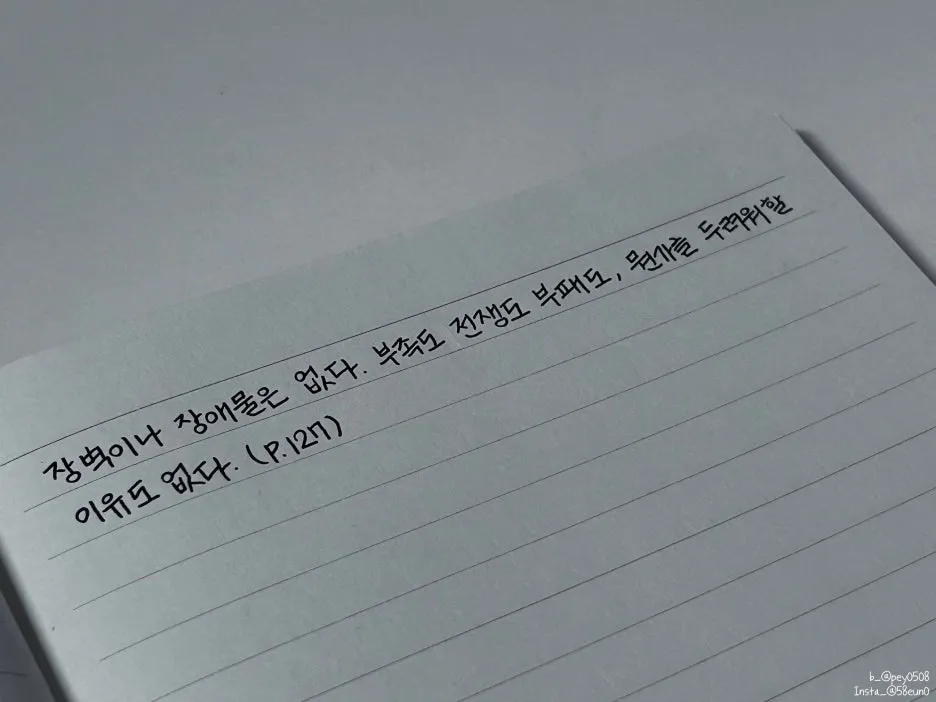 장벽이나 장애물은 없다. 부족도 전쟁도 부패도, 뭔가를 두려워할
이유도 없다. (P.127)
b_@pey0508
Insta_@58eun0